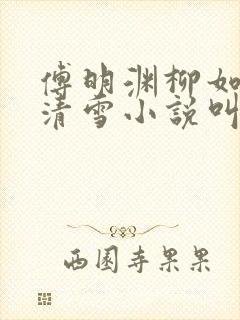 傅明渊柳如
清雪小説叫
西園寺果果